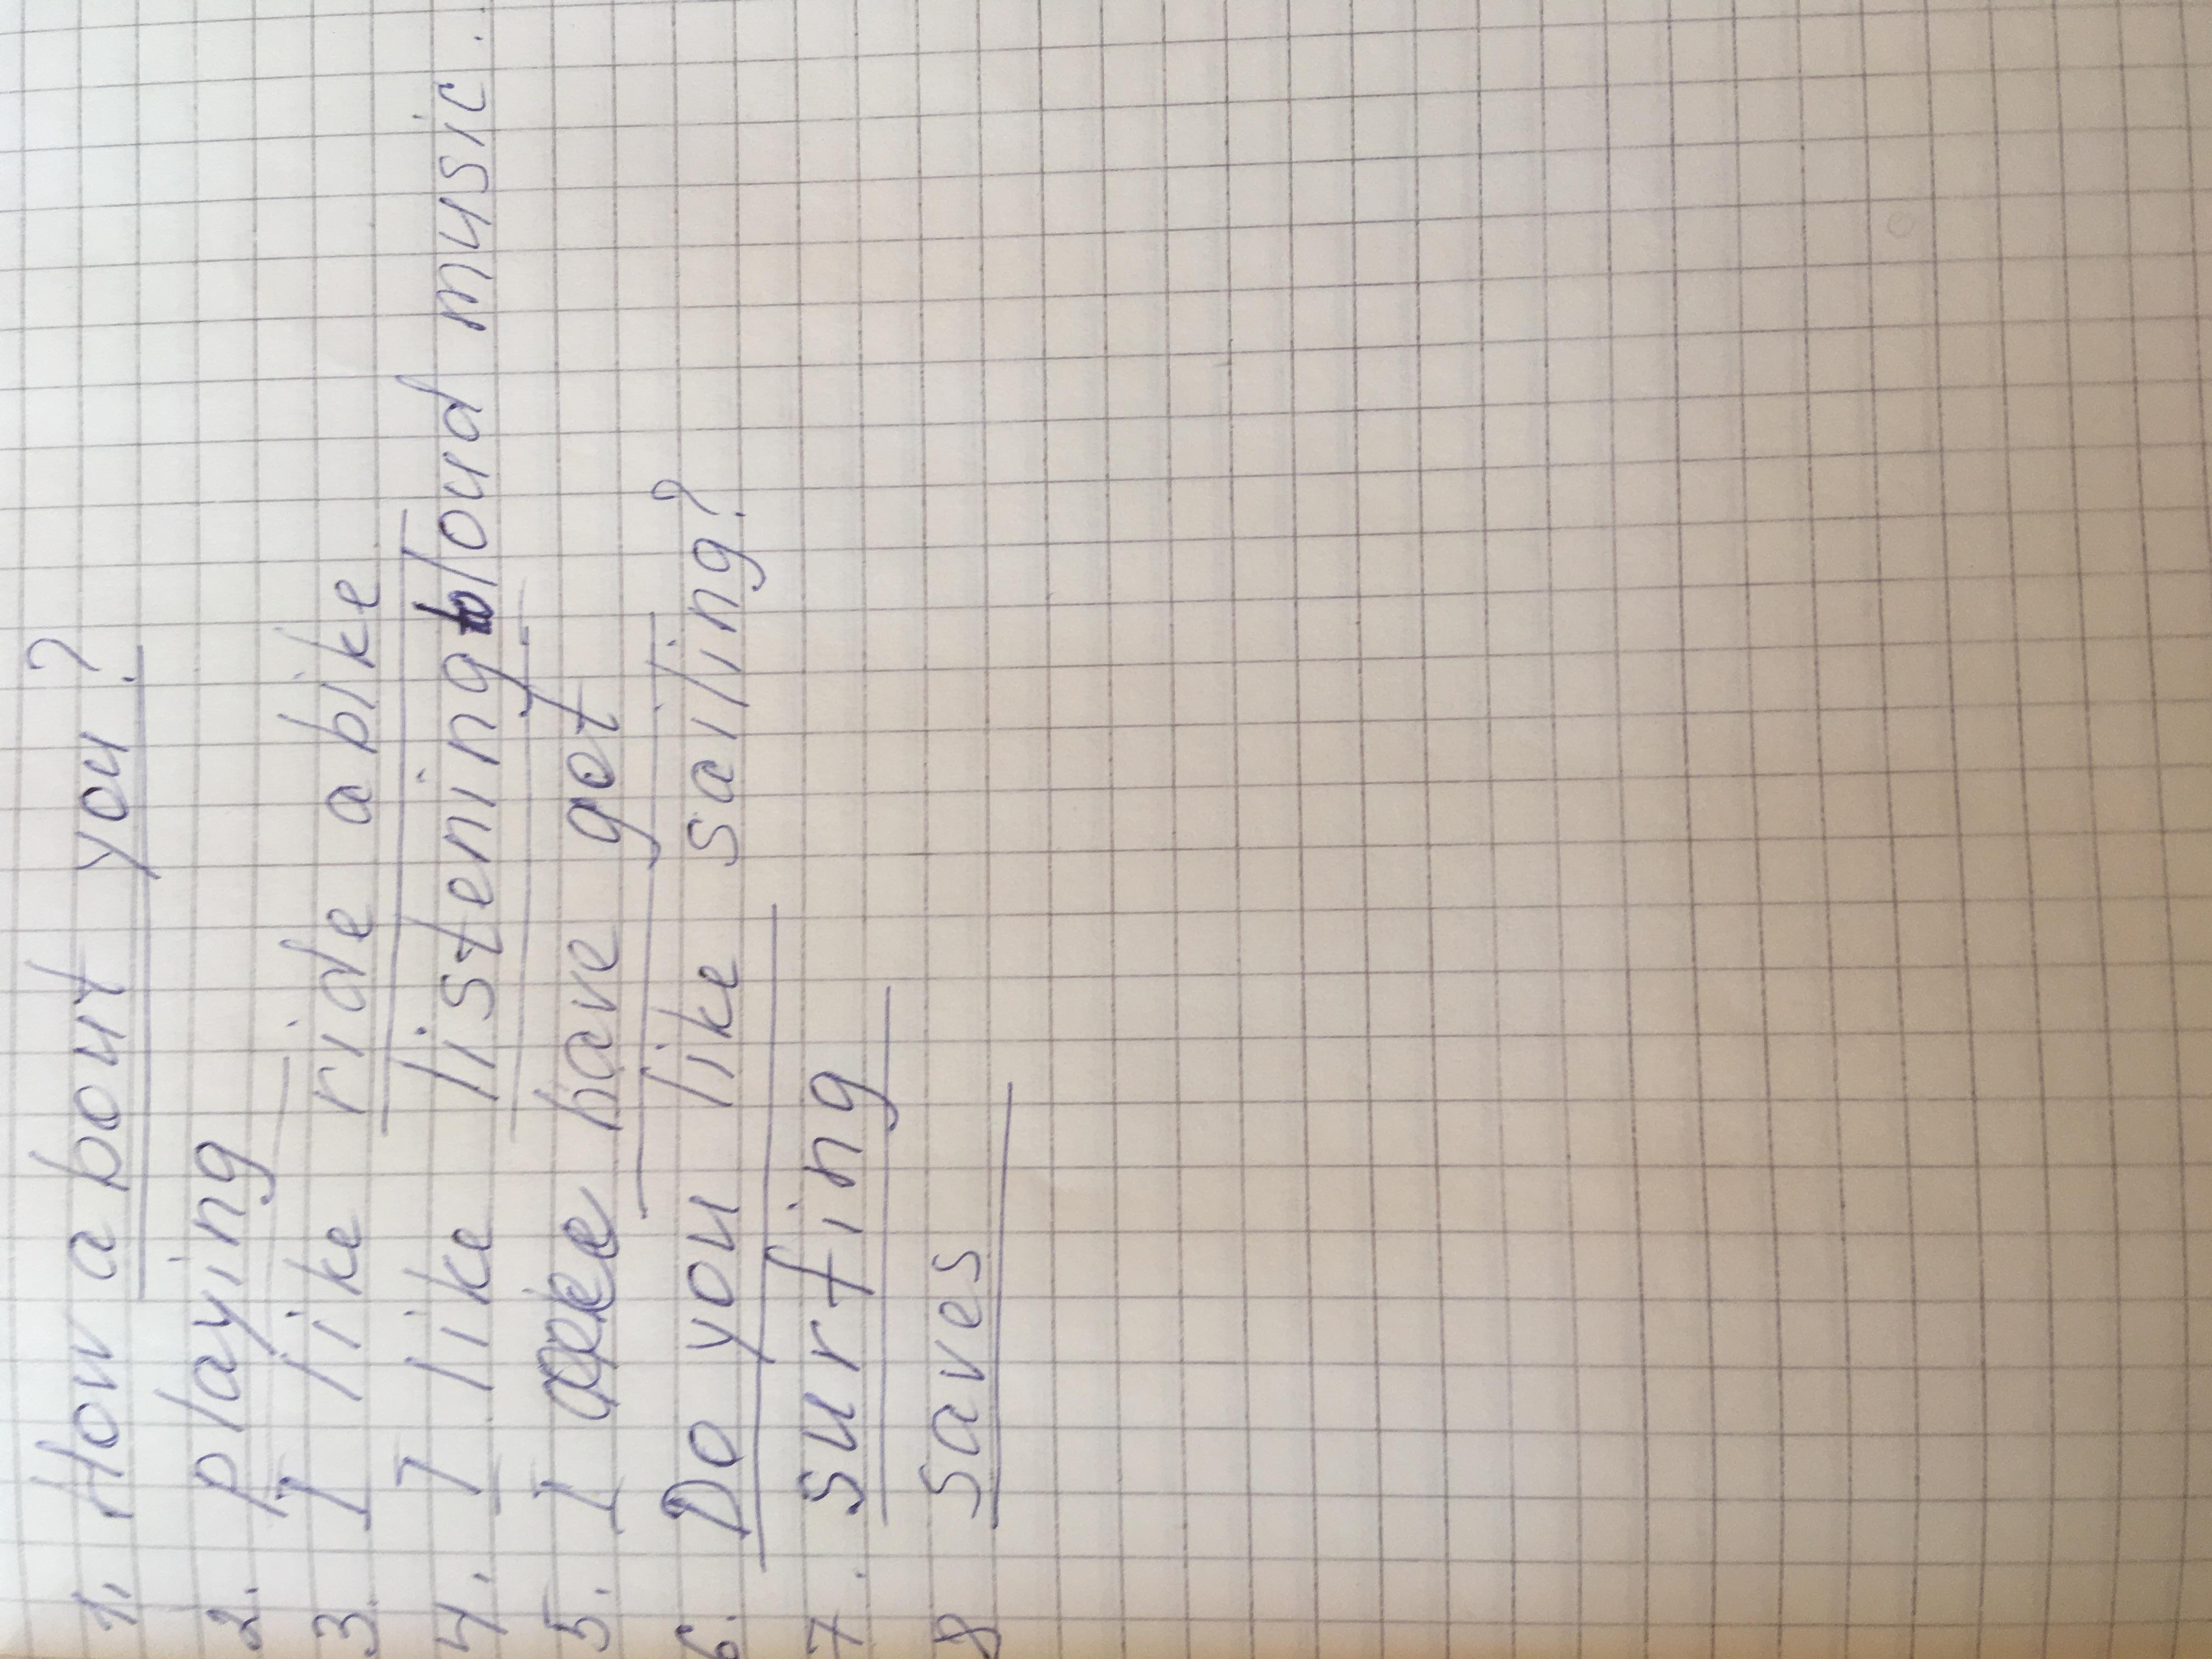 1. How about you?
2. playing
3. I like ride a bike
4. I like listening to loud music.
5. I have got
6. Do you like sailing?
7. surfing
8 Saves